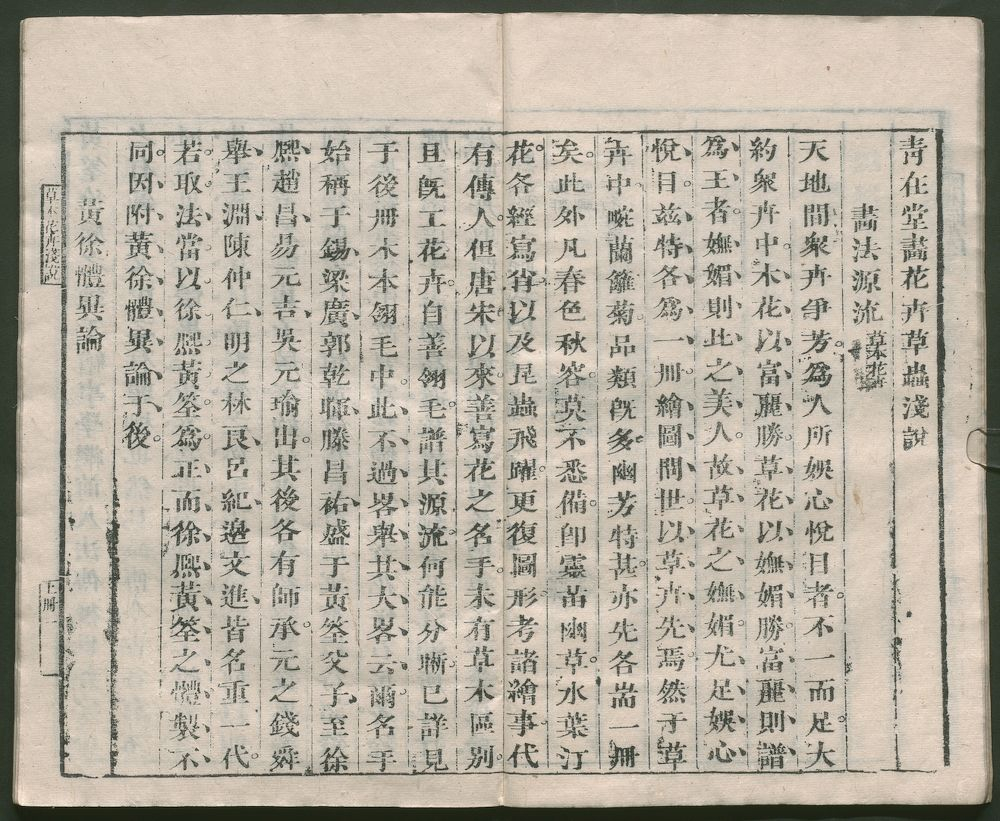 青在堂畫花卉草蟲淺說
畫法源流草本花卉
天地間衆卉爭芳。爲人所娛心悅目者。不一而足。大
約衆卉中木花以富麗勝。草花以嫵媚勝。富麗則譜
爲王者。嫵媚則比之美人。故草花之嫵媚。尤足娛心
悅目。茲特各爲一冊。繪圖問世。以草卉先焉。然于草
卉中。畹蘭籬菊。品類旣多。幽芳特甚。亦先各耑一冊
矣。此外凡春色秋容。莫不悉備。卽靈苗幽草。水葉汀
花。各經寫省。以及昆蟲飛躍。更復圖形。考諸繪事。代
有傳人。但唐宋以來。善寫花之名手。未有草木區別
且旣工花卉。自善翎毛。譜其源流。何能分晰。已詳見
于後冊木本翎毛中。此不過畧舉其大畧云爾。名手
始稱于錫。梁廣。郭乾暉。滕昌祐。盛于黃筌父子。至徐
熙趙昌易元吉吳元瑜出。其後各有師承。元之錢舜
舉。王淵。陳仲仁。明之林良。呂紀。邊文進。皆名重一代。
若取法當以徐熙黃筌爲正。而徐熙黃筌之體製不
同。因附黃徐體異論于後。
黃徐體異論
草本花卉淺說
上冊
一